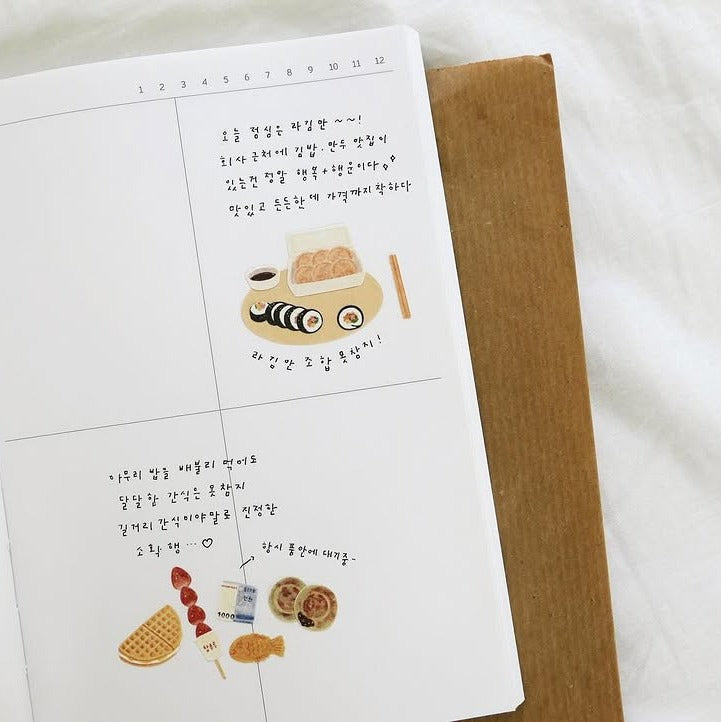 1 2 3 4 5 6 7 8 9 10 11 12
오늘 점심은 라김만 ~~!
회사 근처에 김밥·만두 맛집이
있는건 정말 행복+행운이다
맛있고 든든한데 가격까지 착하다
라김만 조합 못참지!
아무리 밥을 배불리 먹어도
달달한 간식은 못참지
길거리 간식이야말로 진정한
소확행…♡
항시 품안에 대기중~
1000
탕후루